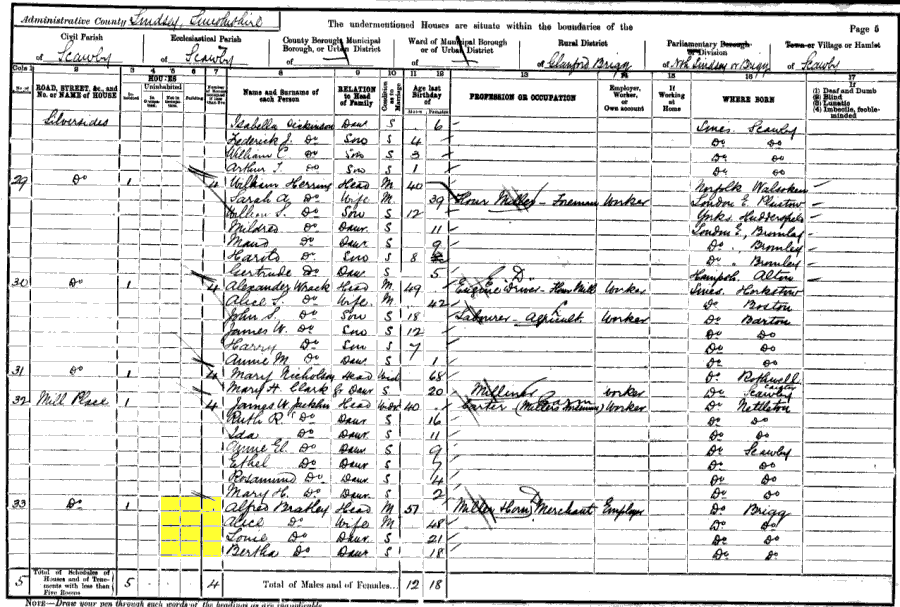 Administrative County Lindsey, Lincolnshire The undermentioned Houses are situate within the boundaries of the Page 5
Civil Parish Ecclesiastical Parish County Borough, Municipal Borough, or Urban District Ward of Municipal Borough or of Urban District Rural District Parliamentary Borough or Division Town or Village or Hamlet
of Scawby of Scawby of of of Glanford Brigg of Nth Lindsey or Brigg of Scawby
Cols 1 2 3 4 5 6 7 8 9 10 11 12 13 14 15 16 17
No. of Schedule ROAD, STREET, &c., and No. or NAME of HOUSE HOUSES Inhabited Uninhabited Building Name and Surname of each Person RELATION to Head of Family Condition as to Marriage Age last Birthday of Males Females PROFESSION OR OCCUPATION Employer, Worker, or Own account If Working at Home WHERE BORN If (1) Deaf and Dumb (2) Blind (3) Lunatic (4) Imbecile, feeble-minded
Silversides Isabella Dickinson Daur S 6 Lincs. Scawby
Frederick J. Do Son S 4 Do Do
William C. Do Son S 3 Do Do
Arthur T. Do Son S 1 Do Do
29 Do 1 4 William Herring Head M 40 Norfolk Walsoken
Sarah A. Do Wife M 39 Flour Miller - Foreman Worker London E. Plaistow
William S. Do Son S 12 Yorks. Huddersfield
Mildred Do Daur S 11 London E., Bromley
Maud Do Daur S 9 Do. Bromley
Harold Do Son S 8 Do. Bromley
Gertrude Do Daur S 5 Hampsh. Alton
30 Do 1 4 Alexander Wrack Head M 49 Engine Driver - Flour Mill Worker Lincs. Horkstow
Alice S. Do Wife M 42 Do Boston
John S. Do Son S 18 Labourer - Agricult. Worker Do Barton
James W. Do Son S 12 Do Do
Harry Do Son S 7 Do Do
Annie M. Do Daur S 1 Do Do
31 Do 1 4 Mary Nicholson Head Wid 68 Do Rothwell
Mary H. Clark G. Daur S 20 Milliner worker Do Scawby
32 Mill Place 1 4 James W. Head Widr 40 Carter (Miller's) Worker Do Nettleton
Ruth R. Do Daur S 16 Do Do
Ida Do Daur S 11 Do Do
Annie El. Do Daur S 9 Do Scawby
Ethel Do Daur S 7 Do Do
Rosamund Do Daur S 4 Do Do
Mary H. Do Daur S 2 Do Do
33 Do 1 Alfred Bratley Head M 57 Miller Merchant Employer Do Brigg
Alice Do Wife M 48 Do Do
Louie Do Daur S 21 Do Do
Bertha Do Daur S 18 Do Do
5 Total of Schedules of Houses and of Tenements with less than Five Rooms 5 4 Total of Males and of Females... 12 18
NOTE—Draw your pen through such words of the headings as are inapplicable.